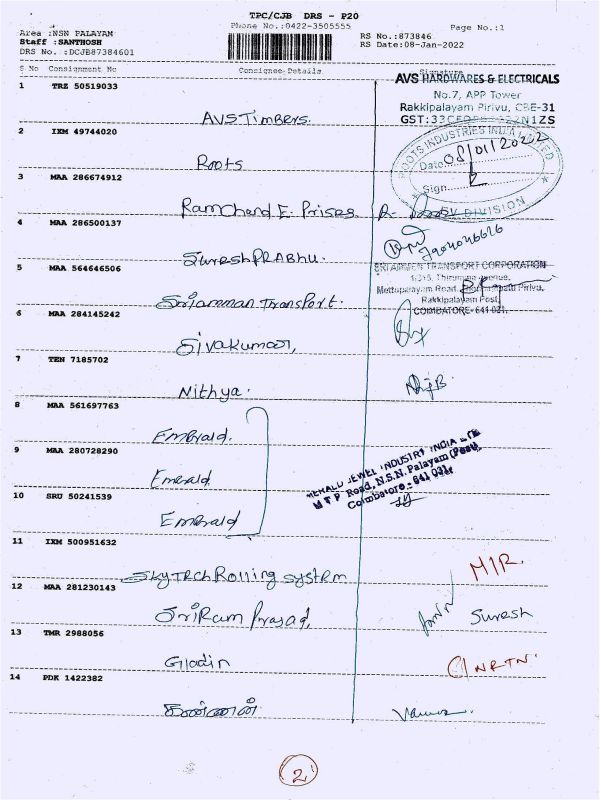 TPC/CJB DRS - P20
Phone No.:0422-3505555
Page No.:1
Area :NSN PALAYAM
RS No.:873846
Staff :SANTHOSH
RS Date:08-Jan-2022
DRS No. :DCJB87384601
S.No Consignment No Consignee Details Signature
AVS HARDWARES & ELECTRICALS
No.7, APP Tower
Rakkipalayam Pirivu, CBE-31
1 TRZ 50519033
AVS Timbers.
2 IXM 49744020
ROOTS INDUSTRIES INDIA LIMITED
Date 08/01/2022
Sign
DIVISION
Roots
3 MAA 286674912
Ramchand E. Prises
4 MAA 286500137
SureshPRABHU.
5 MAA 564646506
SRI AMMEN TRANSPORT CORPORATION
Rakkipalayam Post,
COIMBATORE- 641 031.
Sriamman Transport.
6 MAA 284145242
Sivakumar,
7 TEN 7185702
Nithya.
8 MAA 561697763
Emerald.
9 MAA 280728290
JEWEL INDUSTRY INDIA LTD
M T P Road, N.S.N. Palayam (Post),
Coimbatore - 641 031.
Emerald
10 SRU 50241539
Emerald
11 IXM 500951632
Skytech Rolling System
MIR.
12 MAA 281230143
Sriram Prasad,
Suresh
13 TMR 2988056
Gladin
14 PDK 1422382
கண்ணன்
2